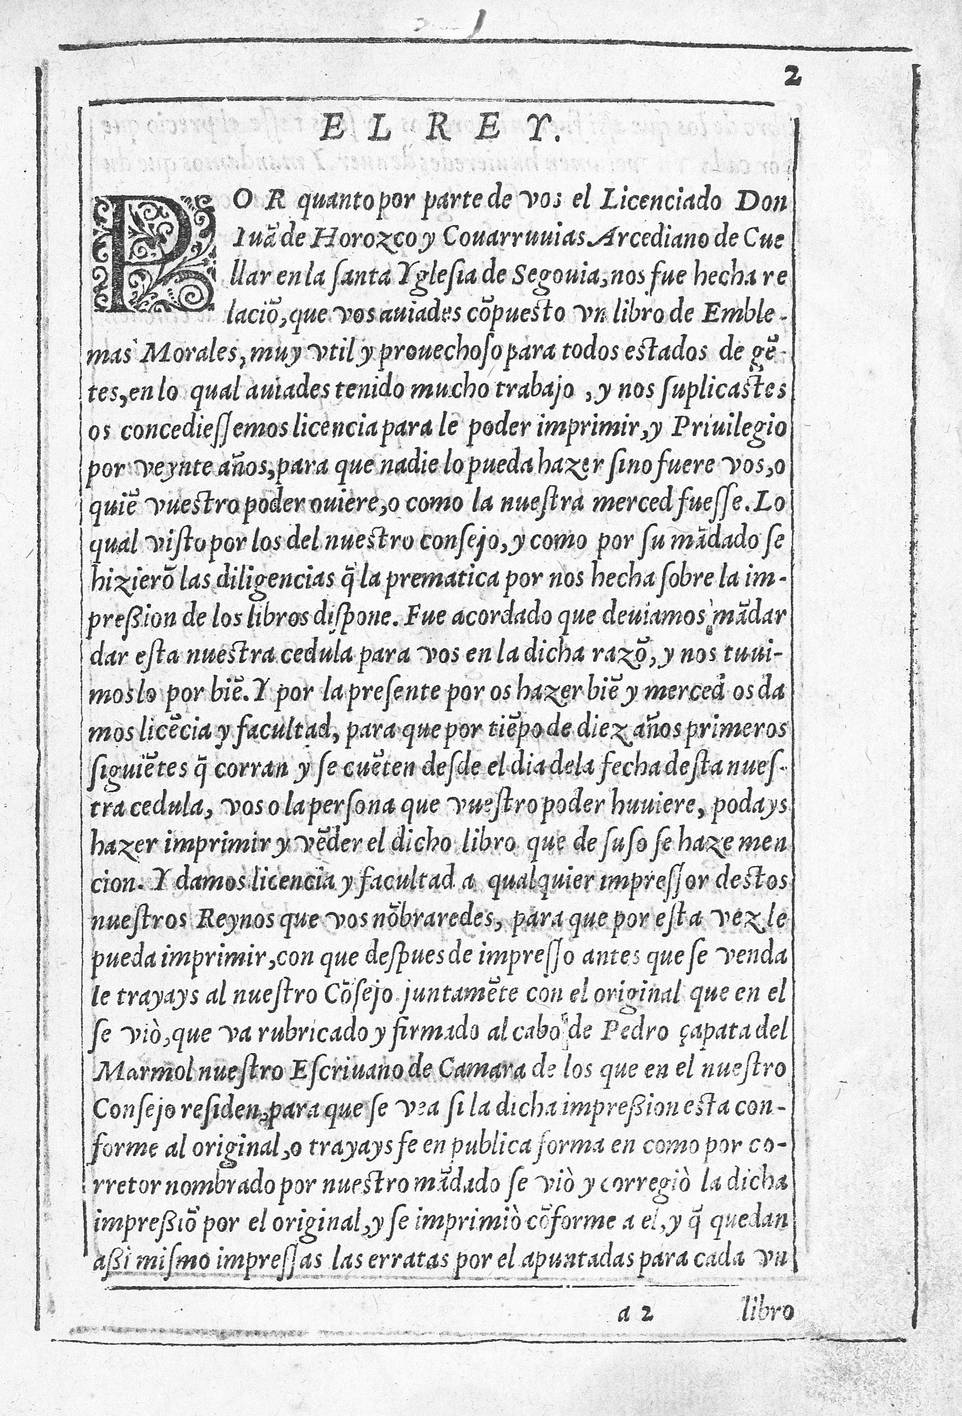 2
EL REY.
POR quanto por parte de vos el Licenciado Don
Iuã de Horozco y Couarruuias Arcediano de Cue
llar en la ſanta Ygleſia de Segouia, nos fue hecha re
laciõ, que vos auiades cõpuesto vn libro de Emble-
mas Morales, muy vtil y prouechoſo para todos estados de gẽ-
tes, en lo qual auiades tenido mucho trabajo, y nos ſuplicastes
os concedieſſemos licencia para le poder imprimir, y Priuilegio
por veynte años, para que nadie lo pueda hazer ſino fuere vos, o
quiẽ vuestro poder ouiere, o como la nueſtra merced fueſſe. Lo
qual viſto por los del nuestro conſejo, y como por ſu mãdado ſe
hizierõ las diligencias q̃ la prematica por nos hecha ſobre la im-
preßion de los libros diſpone. Fue acordado que deuiamos mãdar
dar eſta nuestra cedula para vos en la dicha razõ, y nos tuui-
moslo por biẽ. Y por la preſente por os hazer biẽ y merced os da
mos licẽcia y facultad, para que por tiẽpo de diez años primeros
ſiguiẽtes q̃ corran y ſe cuẽten deſde el dia dela fecha deſta nueſ-
tra cedula, vos o la perſona que vueſtro poder huuiere, podays
hazer imprimir y vẽder el dicho libro que de ſuſo ſe haze men
cion. Y damos licencia y facultad a qualquier impreſſor destos
nueſtros Reynos que vos nõbraredes, para que por eſta vez le
pueda imprimir, con que deſpues de impreſſo antes que ſe venda
le trayays al nueſtro Cõſejo juntamẽte con el original que en el
ſe viò, que va rubricado y firmado al cabo de Pedro çapata del
Marmol nueſtro Eſcriuano de Camara de los que en el nueſtro
Conſejo reſiden, para que ſe vea ſi la dicha impreßion eſta con-
forme al original, o trayays fe en publica forma en como por co-
rretor nombrado por nuestro mãdado ſe viò y corregiò la dicha
impreßiõ por el original, y ſe imprimiò cõforme a el, y q̃ quedan
aßi miſmo impreſſas las erratas por el apuntadas para cada vn
a 2 libro